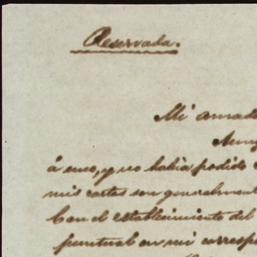 Reservada.
Mi amad
Aunq
á eso, y no habia podido
mis cartas son generalment
Con el establecimiento del
puntual en mi corresp